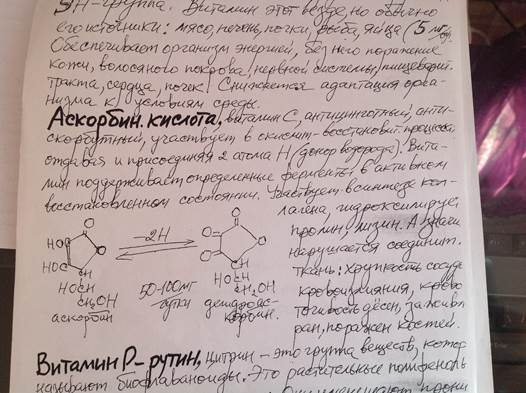 SH-группа. Витамин этот везде, но обычно
его источники: мясо, печень, почки, рыба, яйца (5 мг
Обеспечивает организм энергией, без него поражение
кожи, волосяного покрова, нервной системы, пищеварит.
тракта, сердца, почек. Снижается адаптация орга-
низма к условиям среды.
Аскорбин. кислота, витамин С, антицинготный, анти-
скорбутный, участвует в окислит-восстановит. процессах
отдавая и присоединяя 2 атома Н (донор водорода). Вита-
мин поддерживает определенные ферменты в активном
восстановленном состоянии. Участвует в синтезе кол-
лагена, гидроксилирует
пролин, лизин. А значит
нарушается соединит.
ткань: хрупкость сосуд
кровоизлияния, крово
точивость дёсен, заживл
ран, поражен костей.
O O
HO -2H O
HO O O
CH CH
HOCH HOCH
CH2OH CH2OH
50-100мг
сутки
аскорбин дегидроас-
корбин.
Витамин Р – рутин, цитрин – это группа веществ, котор
называют биофлаваноиды. Это растительные полифеноль
Они уменьшают прони